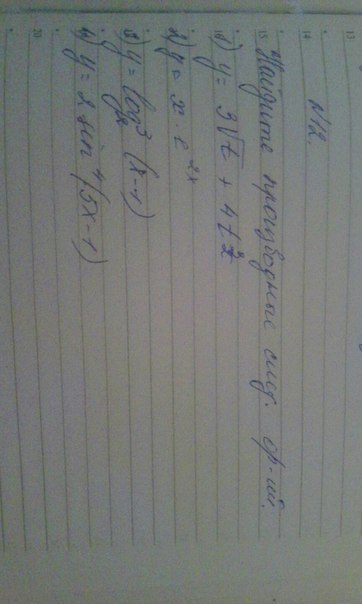 №12
Найдите производные след. ф-ий.
1) y = 3√t + 4t²
2) y = x · e²ˣ
3) y = log₂³ (x-1)
4) y = 2 sin⁴ (5x-1)